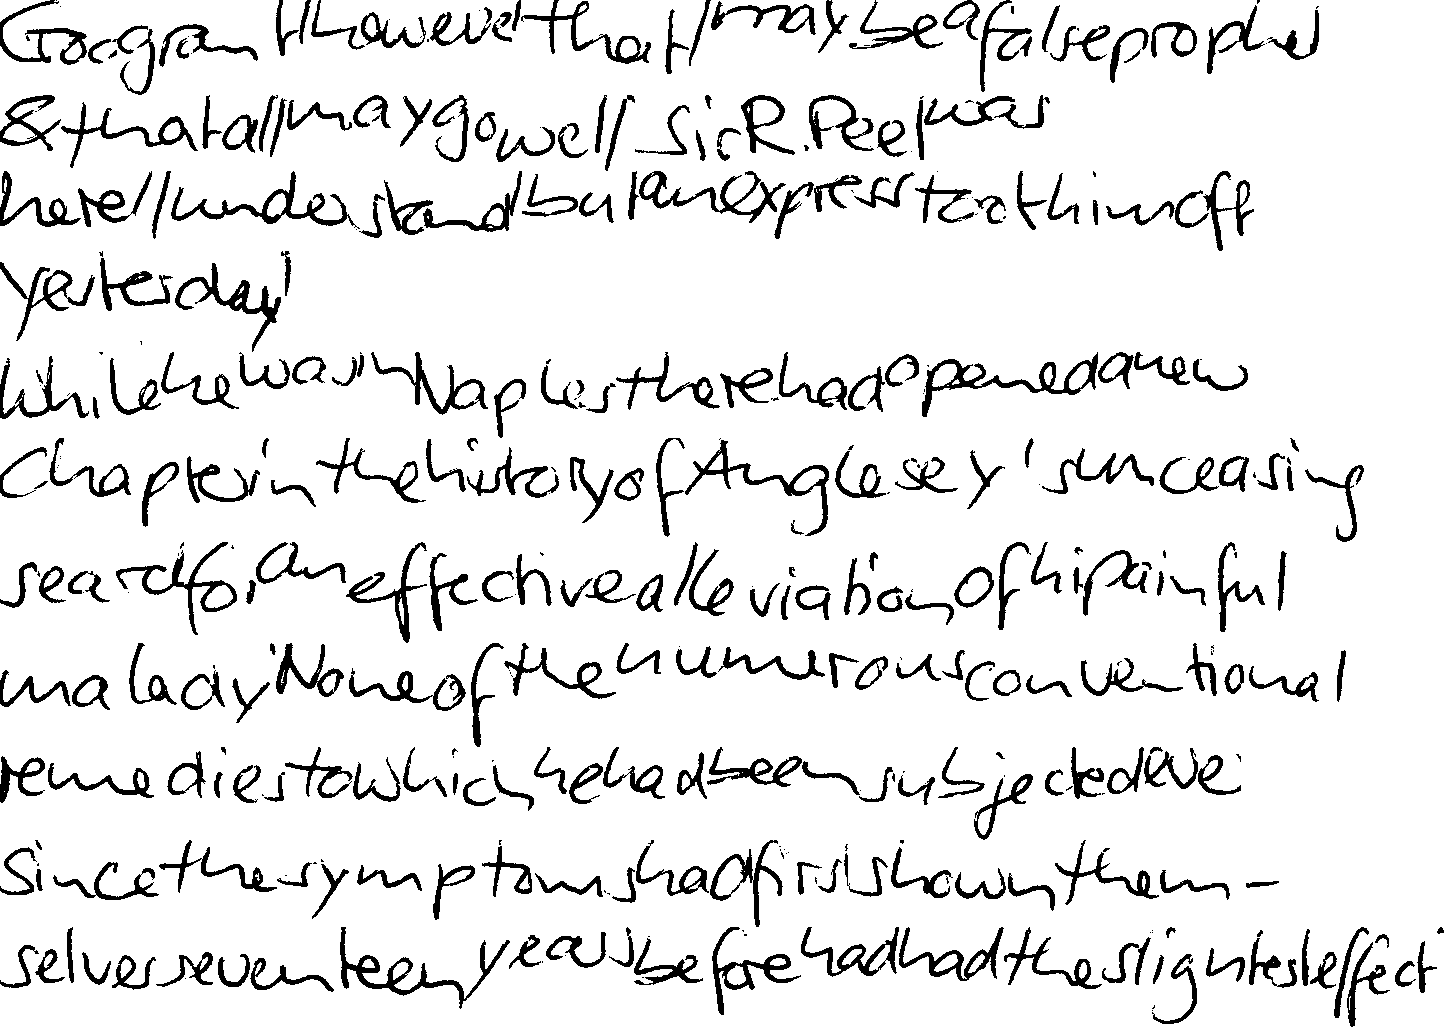 God grant however that I may be a false prophet
& that all may go well. Sir R. Peel was
here I understand but an express took him off
yesterday'
While he was in Naples there had opened a new
Chapter in the history of Anglesey's unceasing
search for an effective alleviation of his painful
malady. None of the numerous conventional
remedies to which he had been subjected ever
since the symptoms had first shown them-
selves seventeen years before had had the slightest effect.